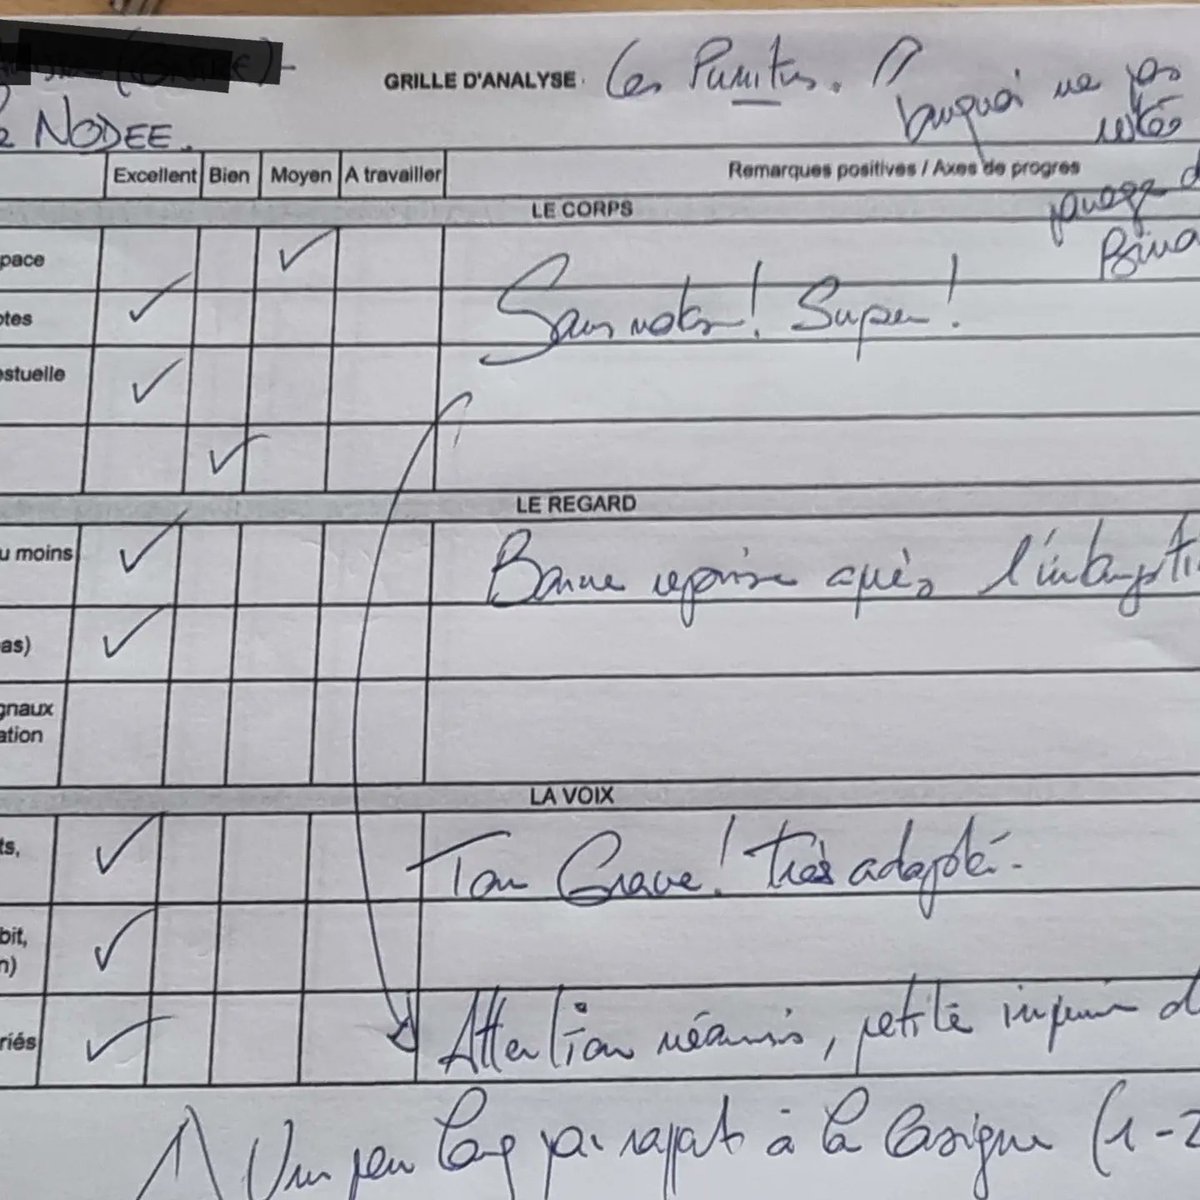 GRILLE D'ANALYSE. Les Punitus.
Pourquoi ne pas
NODEE.
Excellent Bien Moyen A travailler Remarques positives / Axes de progres
LE CORPS
pace
otes Sans notes! Super!
estuelle
LE REGARD
u moins Bonne reprise après l'interrupti
as)
gnaux
ation
LA VOIX
ts, Ton Grave! très adapté.
bit,
n)
riés Attention néanmoins, petite d
1) Un peu long par rapport à la Consigne (1-2